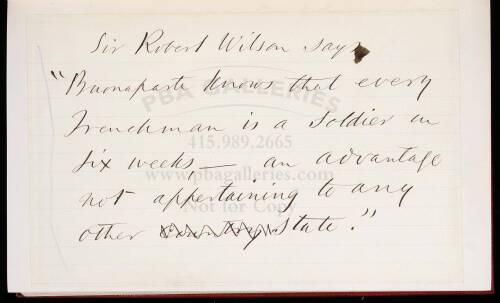 Sir Robert Wilson says
"Buonaparte knows that every
Frenchman is a soldier in
six weeks — an advantage
not appertaining to any
other country State."
PBA GALLERIES
415.989.2665
www.pbagalleries.com
Not for Copy